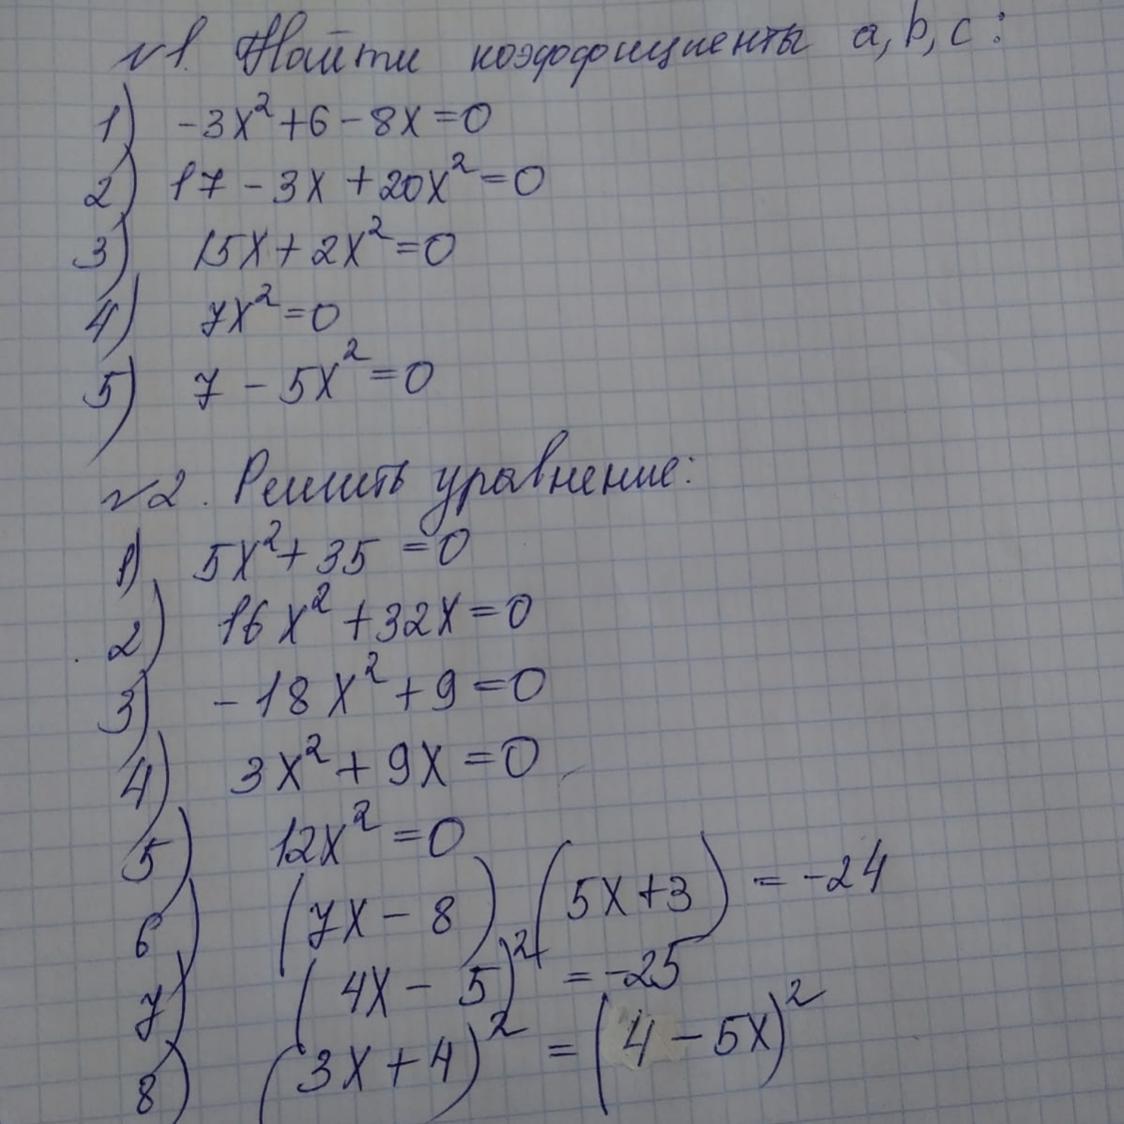 №1. Найти коэффициенты a, b, c:
1) -3x²+6-8x=0
2) 17-3x+20x²=0
3) 15x+2x²=0
4) 7x²=0
5) 7-5x²=0
№2. Решить уравнение:
1) 5x²+35=0
2) 16x²+32x=0
3) -18x²+9=0
4) 3x²+9x=0
5) 12x²=0
6) (7x-8)(5x+3)=-24
7) (4x-5)²=-25
8) (3x+4)²=(4-5x)²